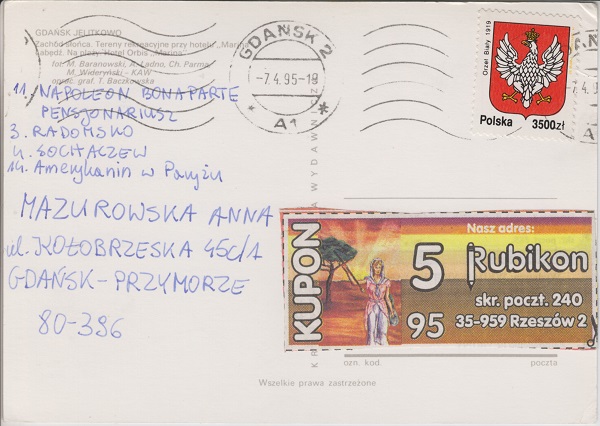 GDAŃSK JELITKOWO
Zachód słońca. Tereny rekreacyjne przy hotelu „Marina"
Łabędź. Na plaży. Hotel Orbis „Marina"
fot. M. Baranowski, A. Ładno, Ch. Parma,
M. Wideryński - KAW
oprac. graf. T. Baczkowska
11. NAPOLEON BONAPARTE
PENSJONARIUSZ
3. RADOMSKO
4. SOCHACZEW
14. Amerykanin w Paryżu
MAZUROWSKA ANNA
ul. KOŁOBRZESKA 45c/1
GDAŃSK-PRZYMORZE
80-396
GDAŃSK 2
-7.4.95-18
* A1 *
Orzeł Biały 1919
Polska 3500zł
KUPON
5
95
Nasz adres:
Rubikon
skr. poczt. 240
35-959 Rzeszów 2
ozn. kod
poczta
Wszelkie prawa zastrzeżone